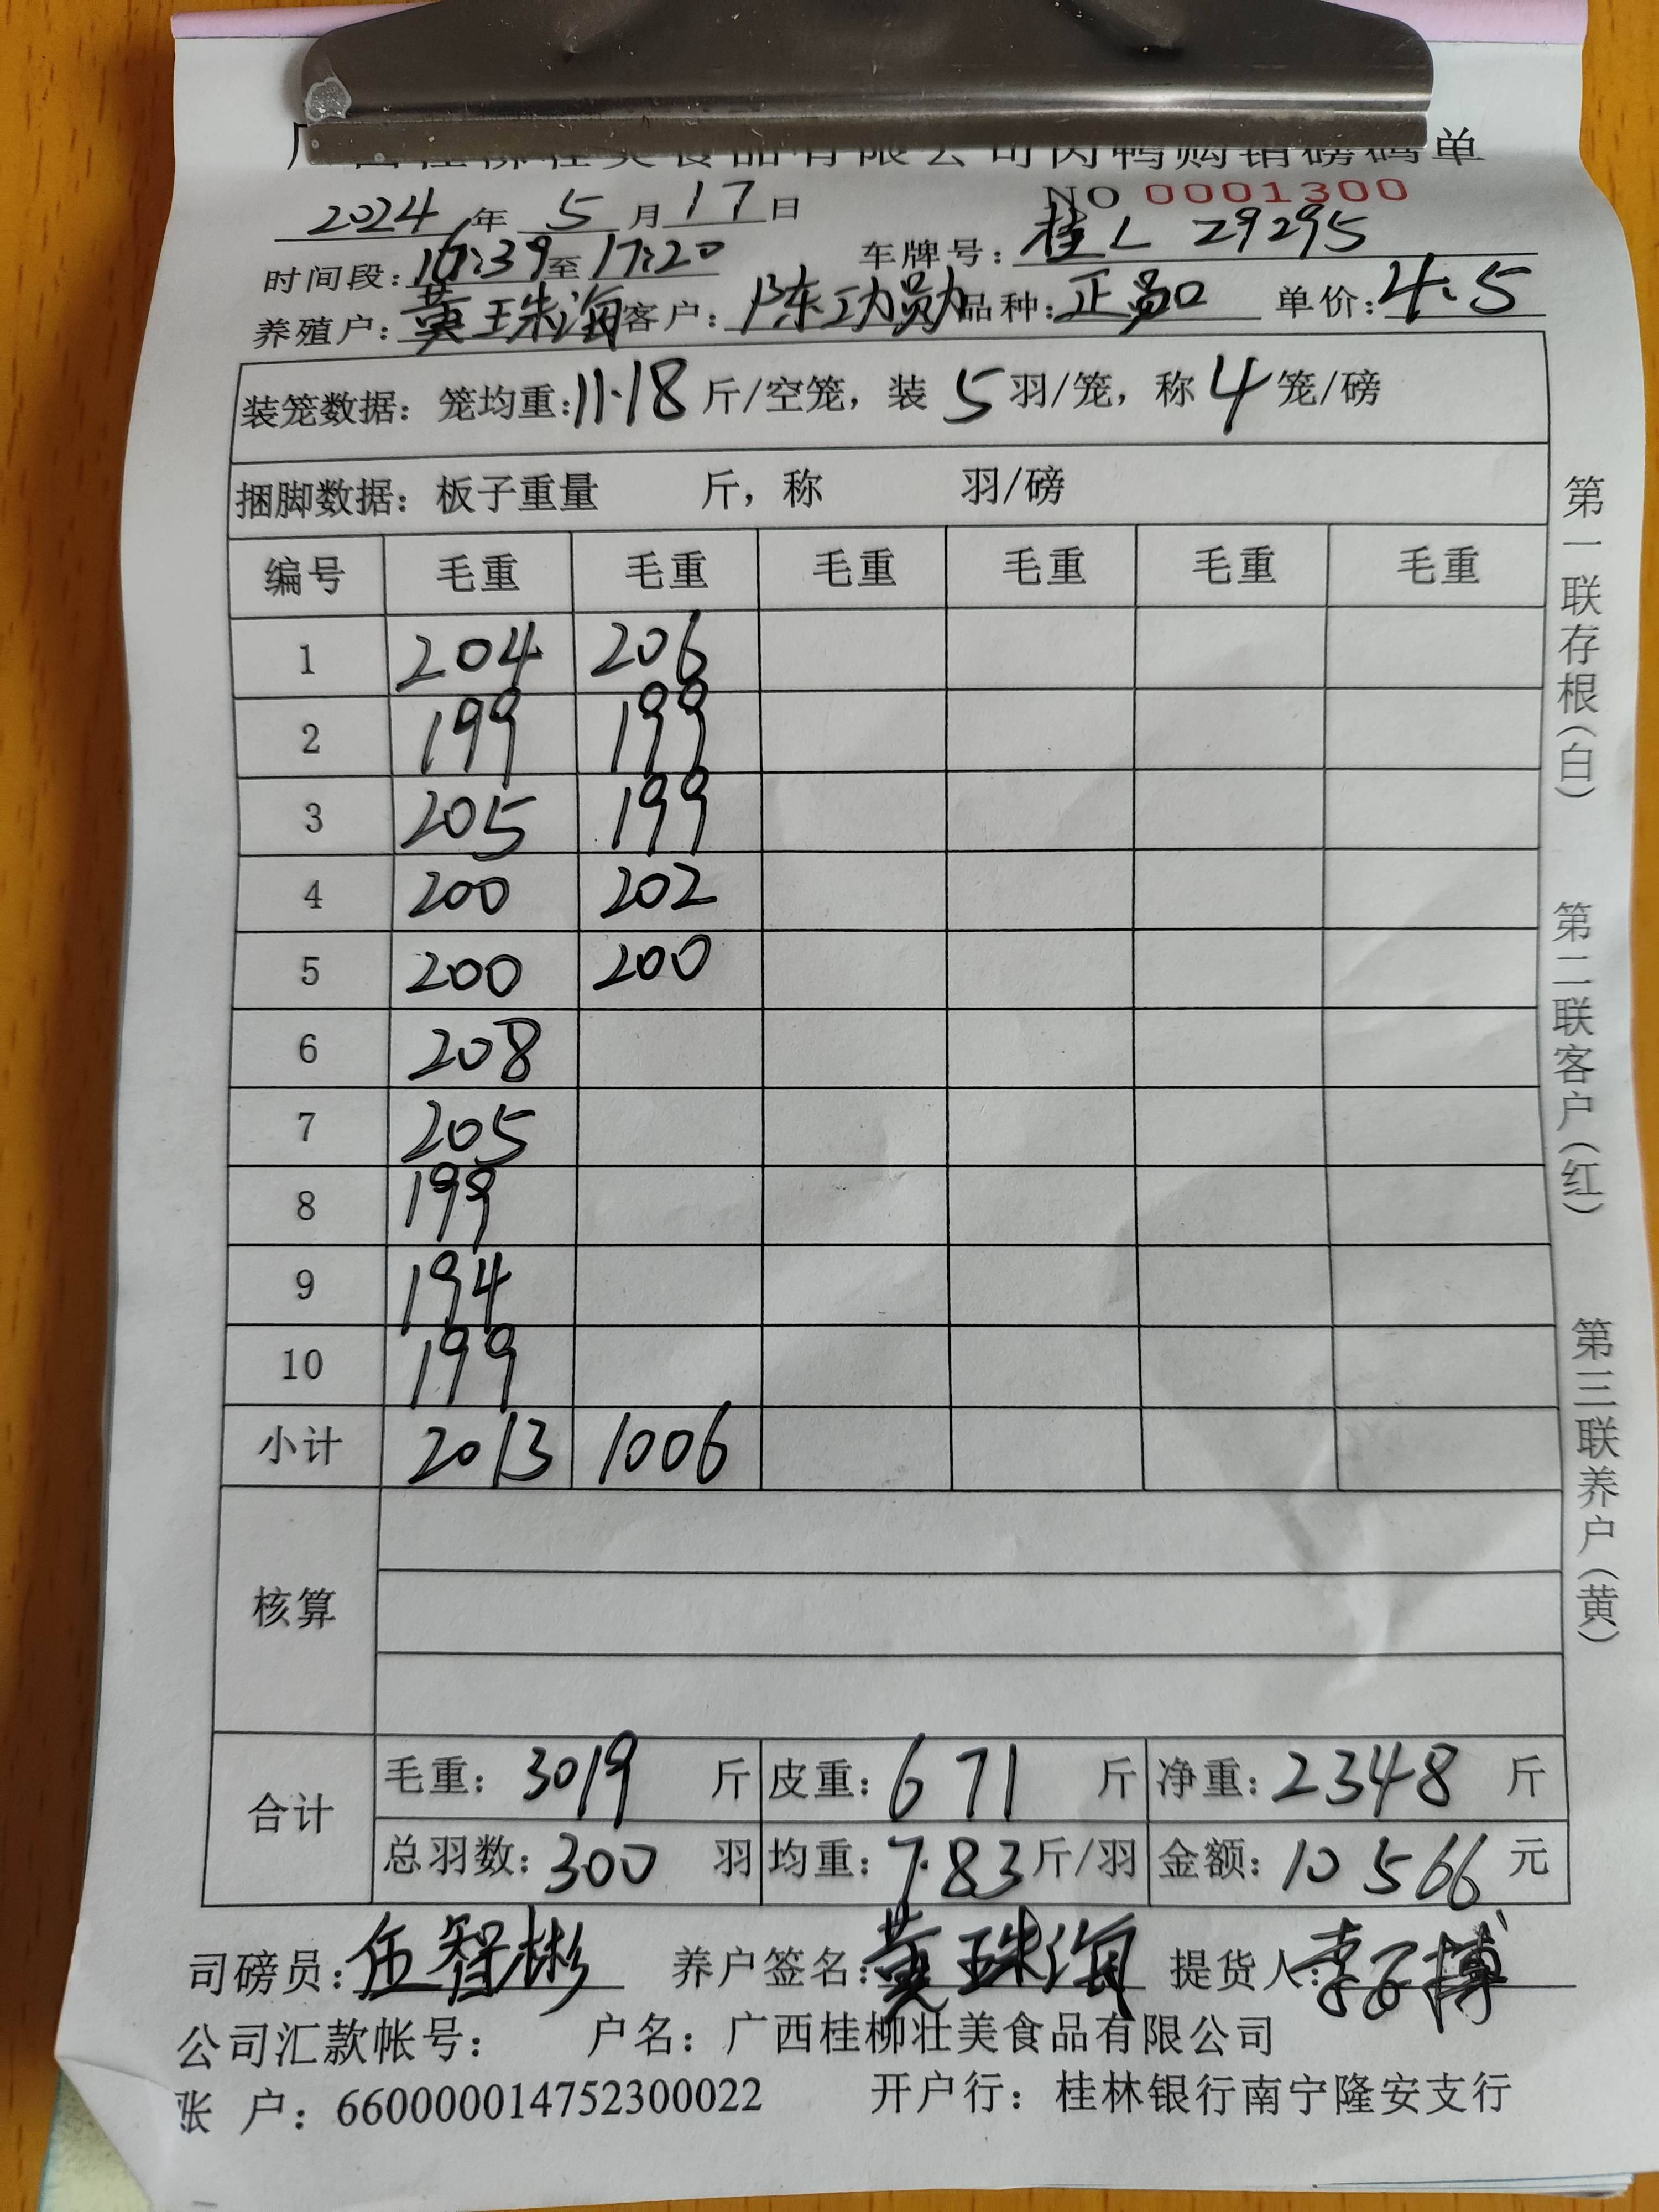 广西桂柳壮美食品有限公司肉鸭购销磅码单
2024年 5月17日 NO 0001300
时间段:16:39至17:20 车牌号:桂L 29295
养殖户:黄珠海 客户:陈功勋 品种:正品 单价:4.5
装笼数据:笼均重:11.18斤/空笼,装 5 羽/笼,称 4 笼/磅
捆脚数据:板子重量 斤,称 羽/磅
编号 毛重 毛重 毛重 毛重 毛重 毛重
1 204 206
2 199 199
3 205 199
4 200 202
5 200 200
6 208
7 205
8 199
9 194
10 199
小计 2013 1006
核算
合计 毛重:3019 斤 皮重:671 斤 净重:2348 斤
总羽数:300 羽 均重:7.83斤/羽 金额:10566 元
司磅员:伍智彬 养户签名:黄珠海 提货人:李子博
公司汇款帐号: 户名:广西桂柳壮美食品有限公司
张 户:660000014752300022 开户行:桂林银行南宁隆安支行
第一联存根(白) 第二联客户(红) 第三联养户(黄)